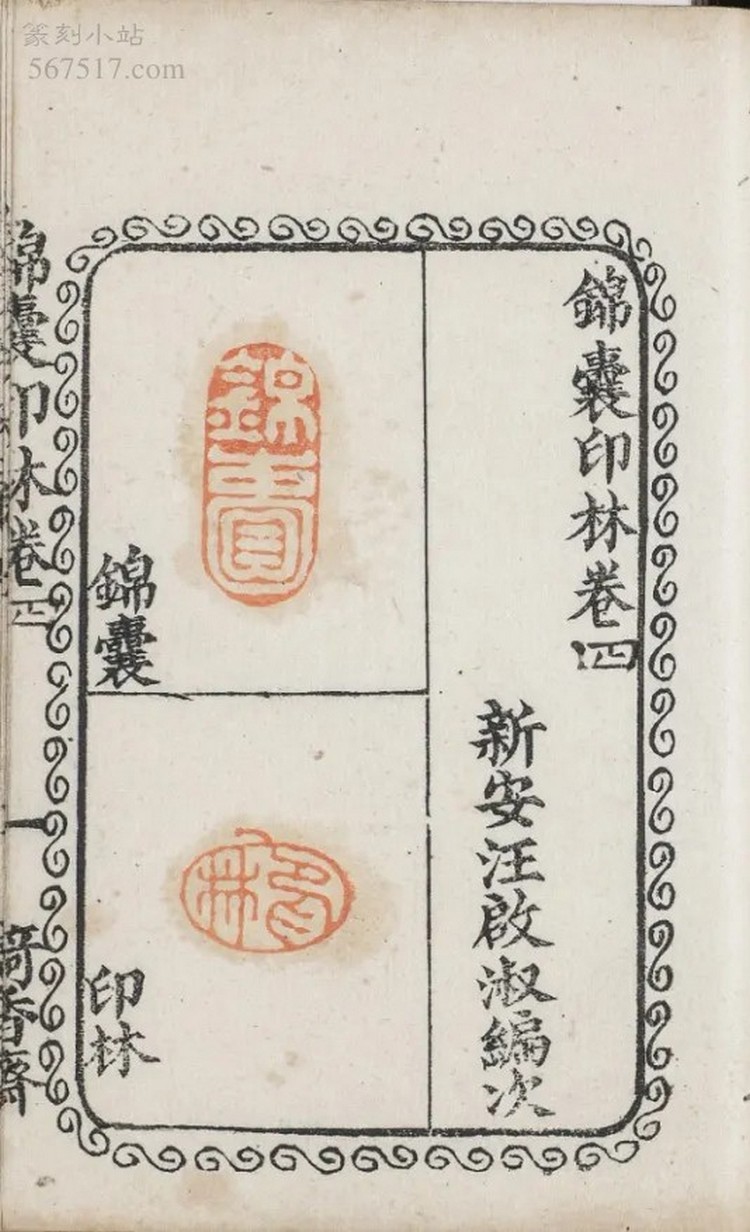 篆刻小站
567517.com
錦囊印林卷四
新安汪啟淑編次
錦囊
印林
錦囊印林卷四
一